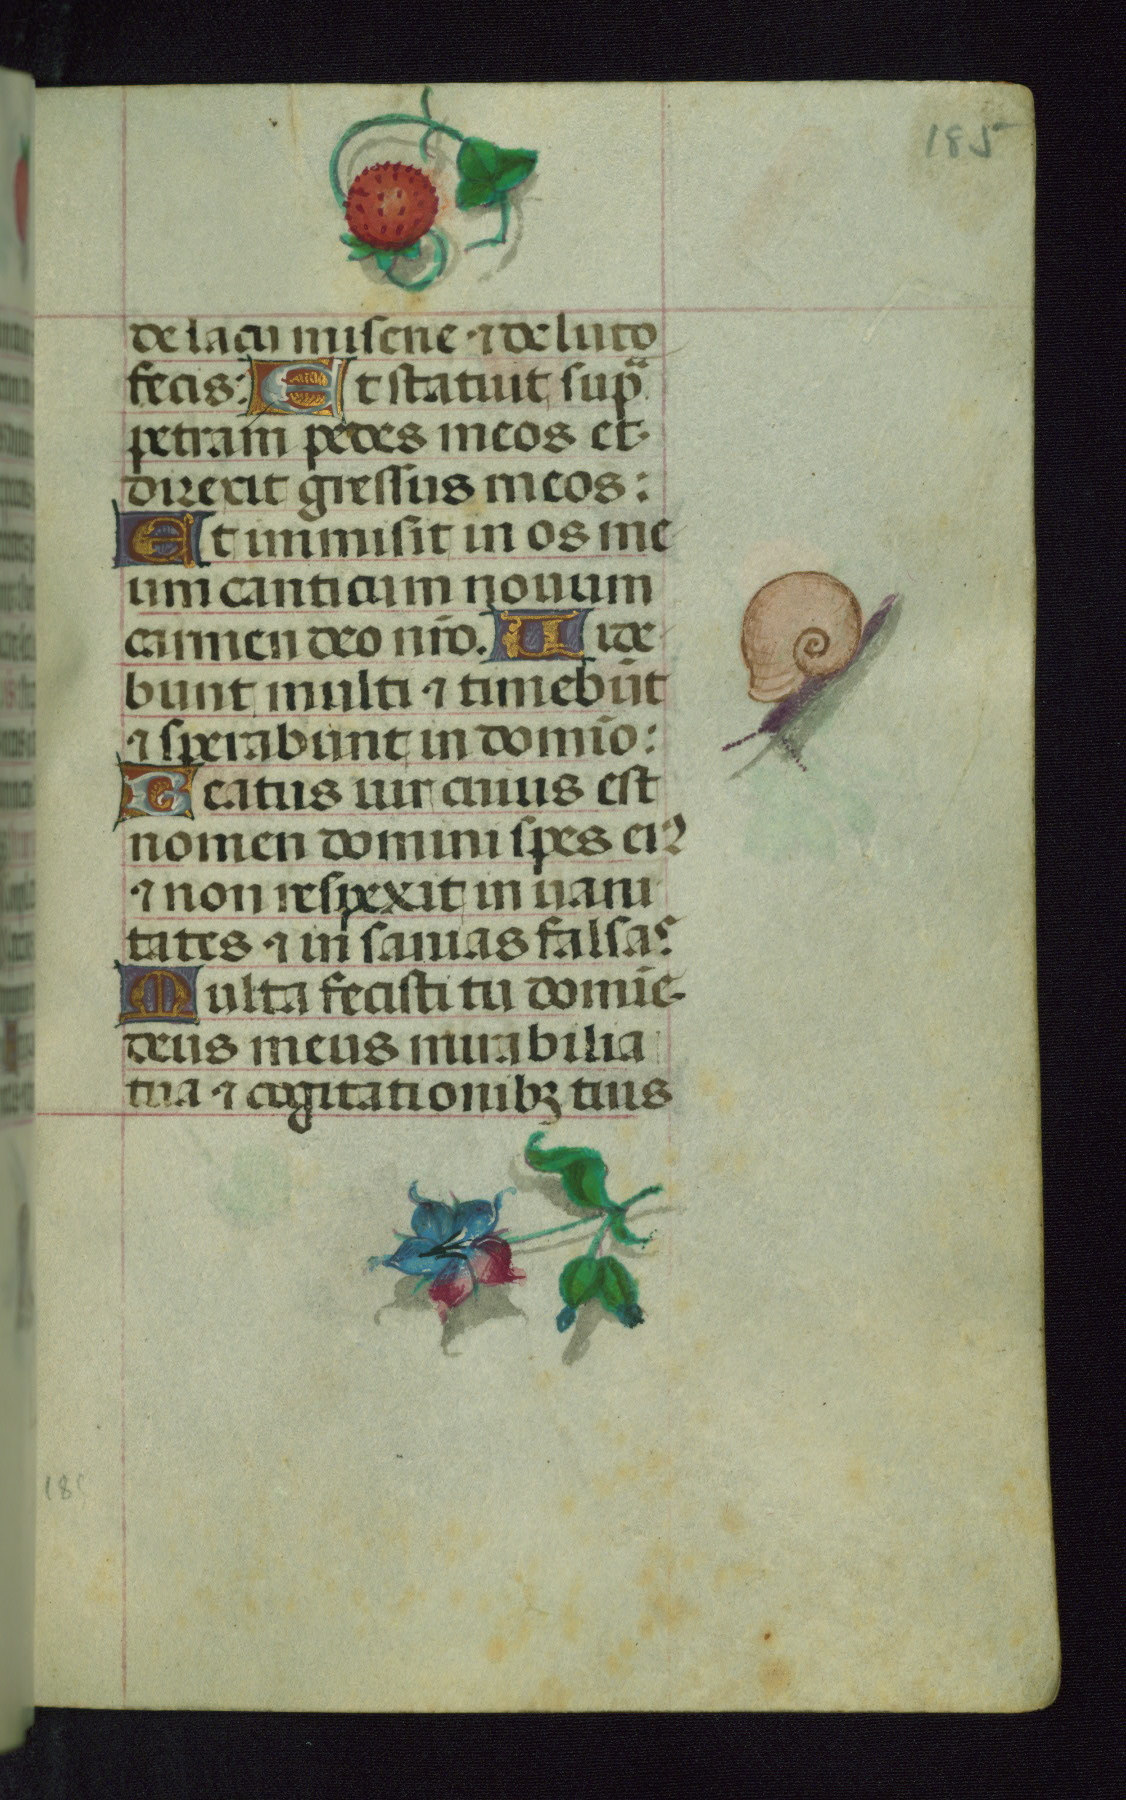 185
de lacu miserie ⁊ de luto
fecis: Et statuit sup̃
petram pedes meos et
direxit gressus meos:
Et immisit in os me
um canticum nouum
carmen deo nr̄o. Uide
bunt multi ⁊ timebūt
⁊ sperabunt in domīo:
Beatus uir cuius est
nomen domini spes eiꝰ
⁊ non respexit in uani
tates ⁊ in sanias falsas
Multa fecisti tu domīe
deus meus mirabilia
tua ⁊ cogitationibꝫ tuis
185